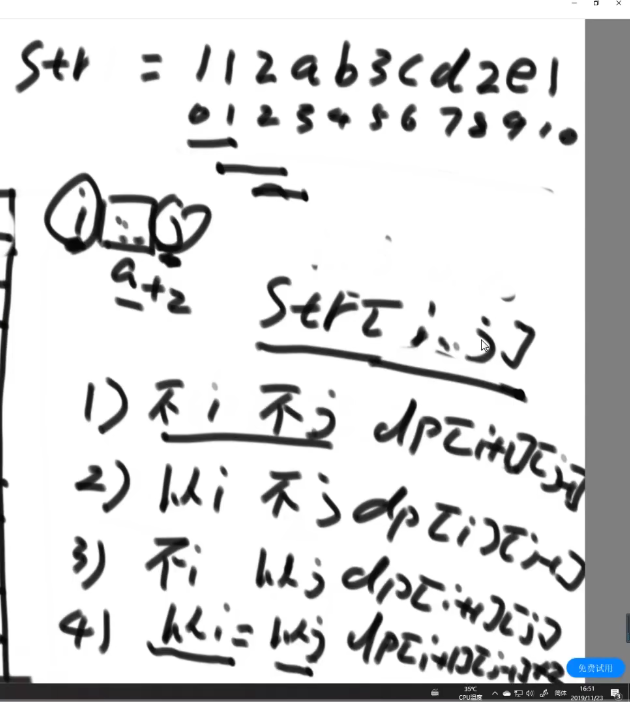 str = 112ab3cd2e1
0 1 2 3 4 5 6 7 8 9 10
i .. j
a+2
str[i..j]
1) 不i 不j dp[i+1][j-1]
2) 以i 不j dp[i][j-1]
3) 不i 以j dp[i+1][j]
4) 以i = 以j dp[i+1][j-1]+2
免费试用
35℃
CPU温度
简体
16:51
2019/11/23
3